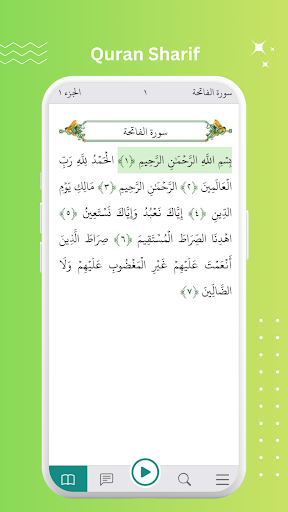 Quran Sharif
سورة الفاتحة ١ الجزء ١
سورة الفاتحة
بِسْمِ اللَّهِ الرَّحْمَنِ الرَّحِيمِ ﴿١﴾ الْحَمْدُ لِلَّهِ رَبِّ
الْعَالَمِينَ ﴿٢﴾ الرَّحْمَنِ الرَّحِيمِ ﴿٣﴾ مَالِكِ يَوْمِ
الدِّينِ ﴿٤﴾ إِيَّاكَ نَعْبُدُ وَإِيَّاكَ نَسْتَعِينُ ﴿٥﴾
اهْدِنَا الصِّرَاطَ الْمُسْتَقِيمَ ﴿٦﴾ صِرَاطَ الَّذِينَ
أَنْعَمْتَ عَلَيْهِمْ غَيْرِ الْمَغْضُوبِ عَلَيْهِمْ وَلَا
الضَّالِّينَ ﴿٧﴾